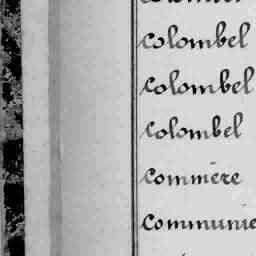 Colombel
Colombel
Colombel
Commère
Communie